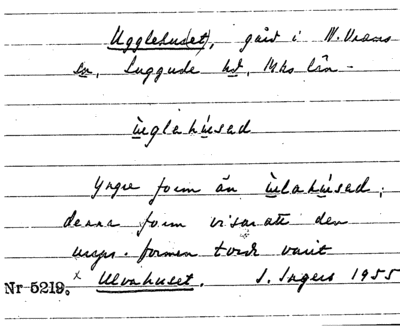 Ugglehus(et), gård i N. Vrams
sn, Luggude hd, Mhs län -
ùglahúsad
Yngre form än ùlahúsad;
denna form visar att den
urspr. formen torde varit
x Ulvahuset. I. Ingers 1955
Nr 5219.